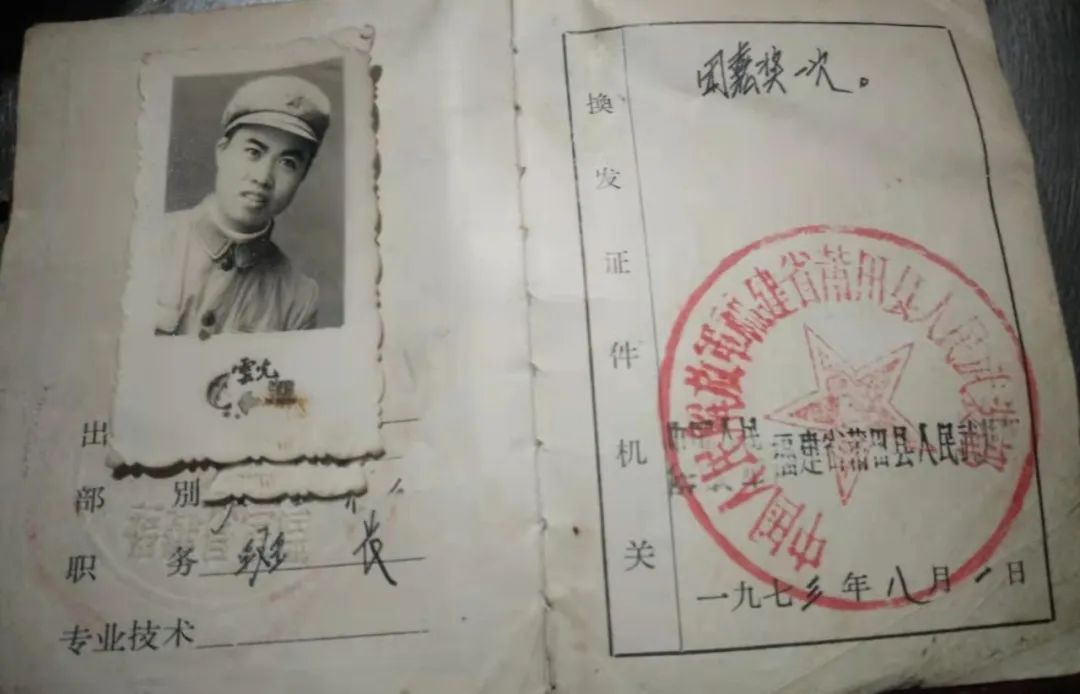 雲光
出
部别
职务 班长
专业技术
换发证件机关
闻嘉奖一次。
中国人民解放军福建省莆田县人民武装部
福建省莆田县人民武
一九七三年八月一日